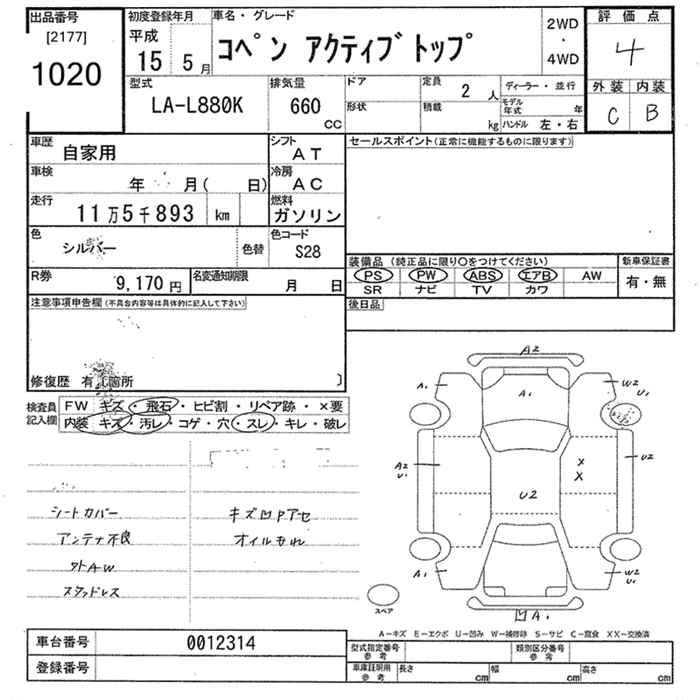 出品番号 初度登録年月 車名・グレード 2WD・4WD 評価点
[2177] 平成
1020 15年5月 コペン アクティブトップ 4
型式 排気量 ドア 定員 2人 ディーラー・並行 外装 内装
LA-L880K 660 CC 形状 積載 kg モデル年式 年 C B
ハンドル 左・右
車歴 自家用 シフト AT セールスポイント(正常に機能するものに限ります)
車検 年 月( 日) 冷房 AC
走行 11万5千893 km 燃料 ガソリン
色 シルバー 色替 色コード S28
装備品 (純正品に限り○をつけてください) 新車保証書
R券 9,170円 名変通知期限 月 日 PS PW ABS エアB AW 有・無
SR ナビ TV カワ
注意事項申告欄(不具合内容等は具体的に記入して下さい) 後日品
修復歴 有 箇所
検査員 FW キズ・飛石・ヒビ割・リペア跡・×要
記入欄 内装 キズ・汚レ・コゲ・穴・スレ・キレ・破レ
シートカバー キズ凹Pアセ
アンテナ不良 オイルもれ
外AW
スタッドレス
A2
A1 A1 W2
U1
A2 U2
U1
X
X
U2
A1 W2
U1
スペア 凹A1
A-キズ E-エクボ U-凹み W-補修跡 S-サビ C-腐食 XX-交換済
車台番号 0012314 型式指定番号 参考 類別区分番号 参考
登録番号 車庫証明用 参考 長さ cm 幅 cm 高さ cm